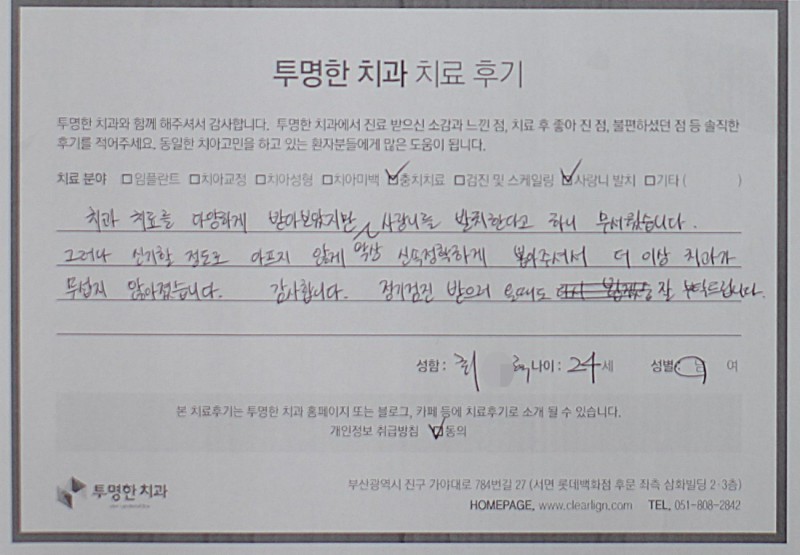 투명한 치과 치료 후기
투명한 치과와 함께 해주셔서 감사합니다. 투명한 치과에서 진료 받으신 소감과 느낀 점, 치료 후 좋아 진 점, 불편하셨던 점 등 솔직한
후기를 적어주세요. 동일한 치아고민을 하고 있는 환자분들에게 많은 도움이 됩니다.
치료 분야 □임플란트 □치아교정 □치아성형 □치아미백 ☑충치치료 □검진 및 스케일링 ☑사랑니 발치 □기타 ( )
치과 치료를 다양하게 받아보았지만 사랑니를 발치한다고 하니 무서웠습니다.
그러나 신기할 정도로 아프지 않게 막상 신속정확하게 뽑아주셔서 더 이상 치과가
무섭지 않아졌습니다. 감사합니다. 정기검진 받으러 올때도 잘 부탁드립니다.
성함 : 최 나이 : 24 세 성별 : 남 여
본 치료후기는 투명한 치과 홈페이지 또는 블로그, 카페 등에 치료후기로 소개 될 수 있습니다.
개인정보 취급방침 ☑동의
투명한 치과
부산광역시 진구 가야대로 784번길 27 (서면 롯데백화점 후문 좌측 삼화빌딩 2·3층)
HOMEPAGE. www.clearlign.com TEL. 051-808-2842